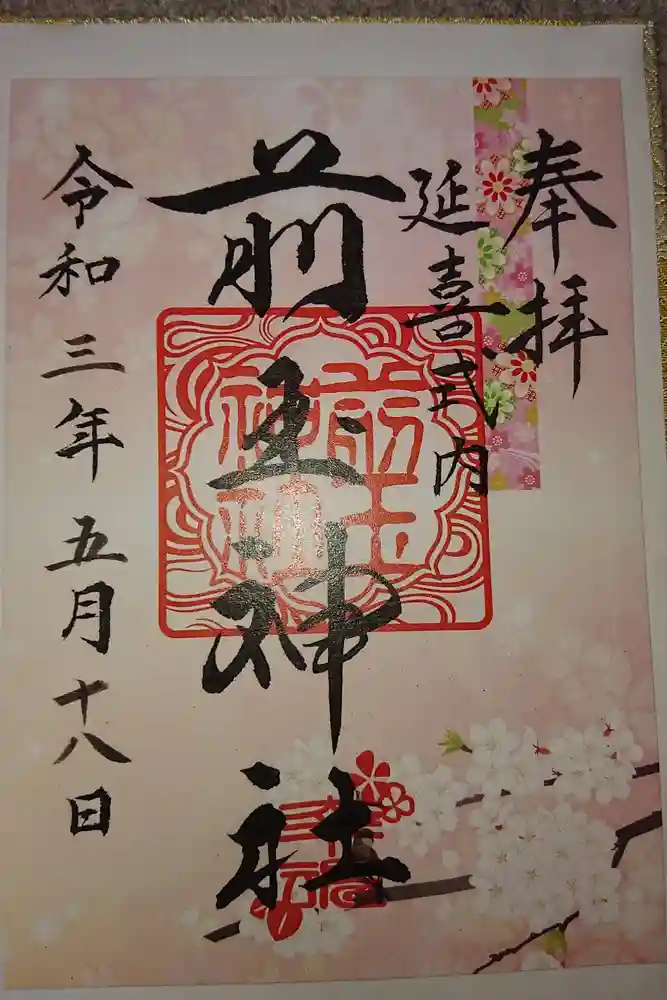 奉拝
延喜式内
前玉神社
前玉神社
令和三年五月十八日